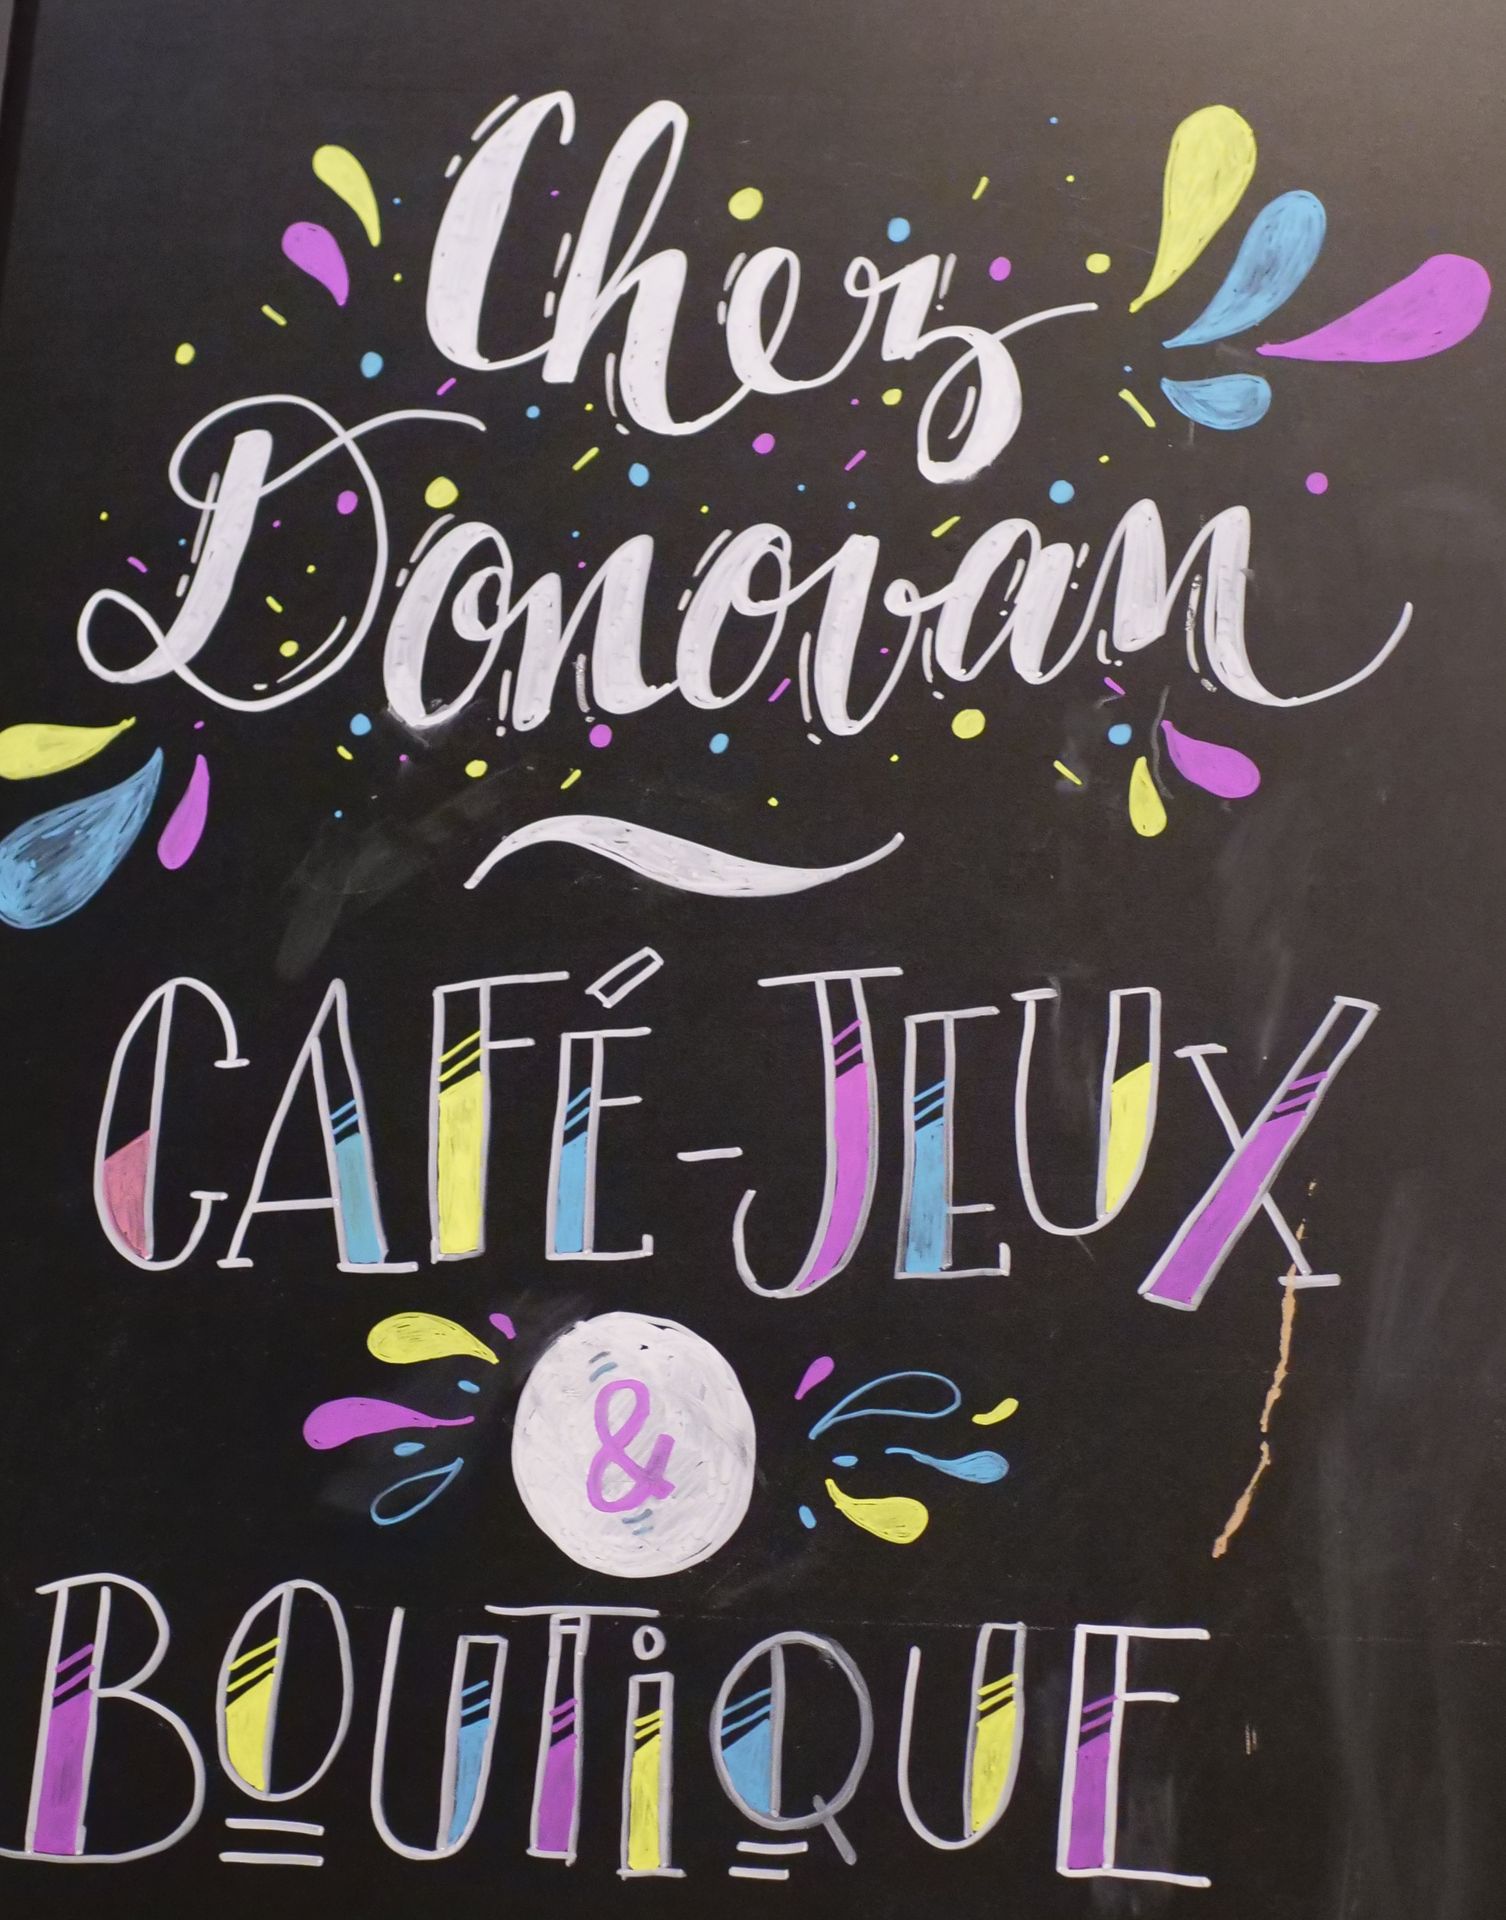 Chez
Donovan
CAFÉ-JEUX
&
BOUTiQUE